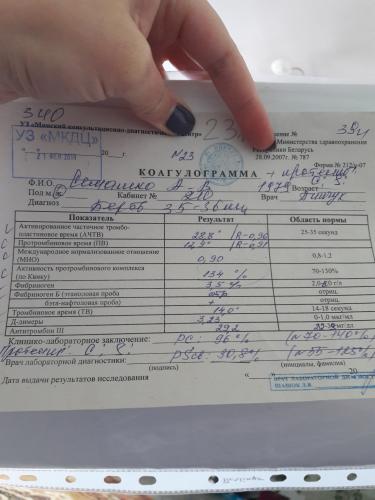 340
УЗ «Минский консультационно-диагностический центр»
УЗ «МКДЦ»
Министерства здравоохранения
Республики Беларусь
28.09.2007г. № 787
Форма № 212/у-07
№23
КОАГУЛОГРАММА
Ф.И.О. А. В. 1979 Возраст
Пол м Кабинет № 210 Врач
Диагноз Берем 35-36 нед
Показатель Результат Область нормы
Активированное частичное тромбо-
пластиновое время (АЧТВ) 28,8" R-0,96 25-35 секунд
Протромбиновое время (ПВ) 12,4" R-0,91
Международное нормализованное отношение
(МНО) 0,90 0,8-1,2
Активность протромбинового комплекса
(по Квику) 134 % 70-130%
Фибриноген 3,5 г/л
Фибриноген Б (этаноловая проба отр отриц.
бэта-нафтоловая проба) + отриц.
Тромбиновое время (ТВ) 14,0" 14-18 секунд
D-димеры 3,23 0-1,0 мкг/мл
Антитромбин III 29,2 мг/дл
Клинико-лабораторное заключение: PC: 96 % (N 70-140%)
Протеин C, S: PSc: 30,8% (N 55-125%)
Врач лабораторной диагностики: (подпись) (инициалы, фамилия)
Дата выдачи результатов исследования « » 20
ВРАЧ ЛАБОРАТОРНОЙ ДИАГНОСТИКИ